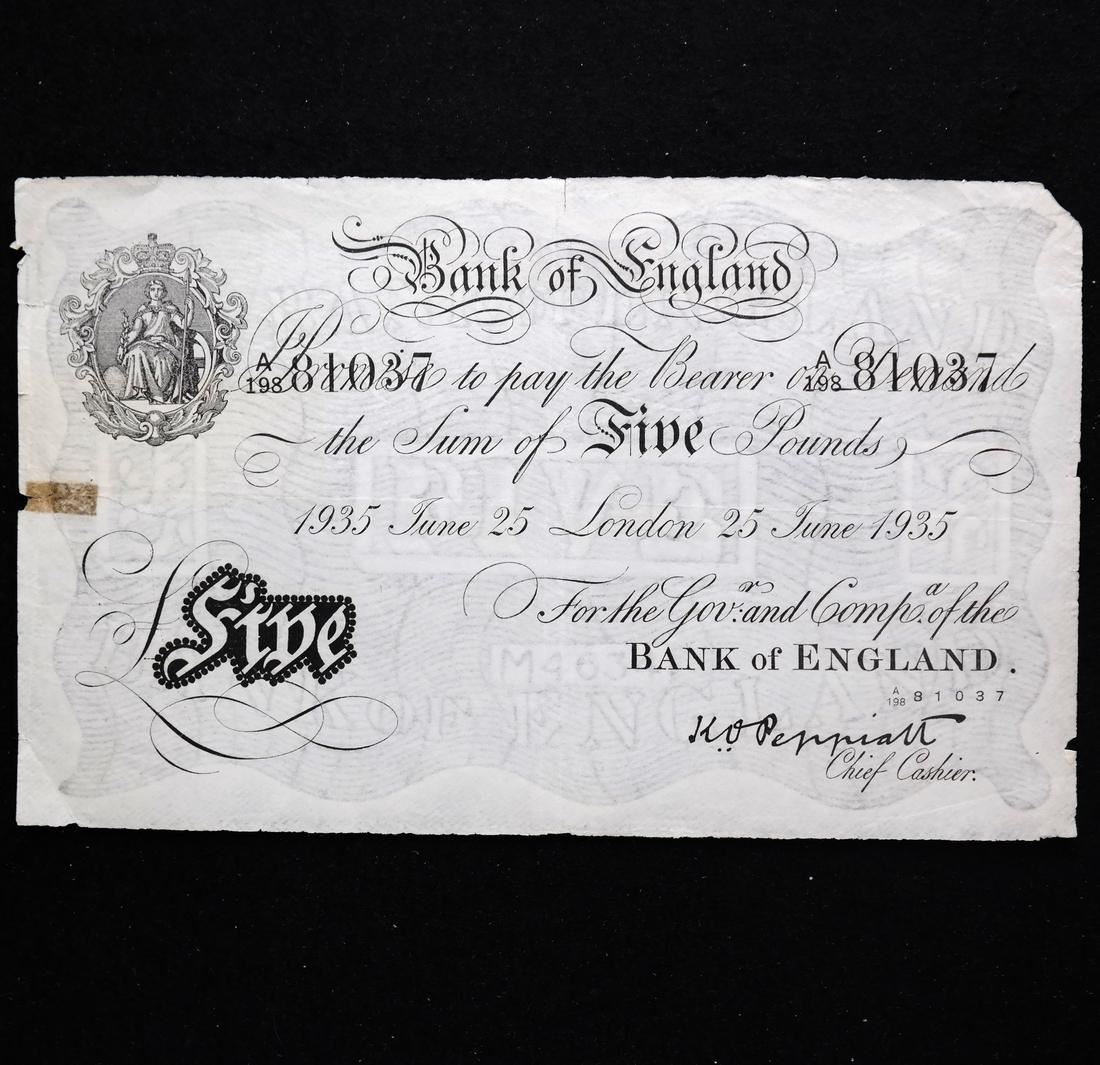 Bank of England
A/198 81037 A/198 81037
I Promise to pay the Bearer on Demand
the Sum of Five Pounds
1935 June 25 London 25 June 1935
For the Gov.r and Comp.a of the
BANK of ENGLAND.
A/198 81037
£Five
K.O. Peppiatt
Chief Cashier.